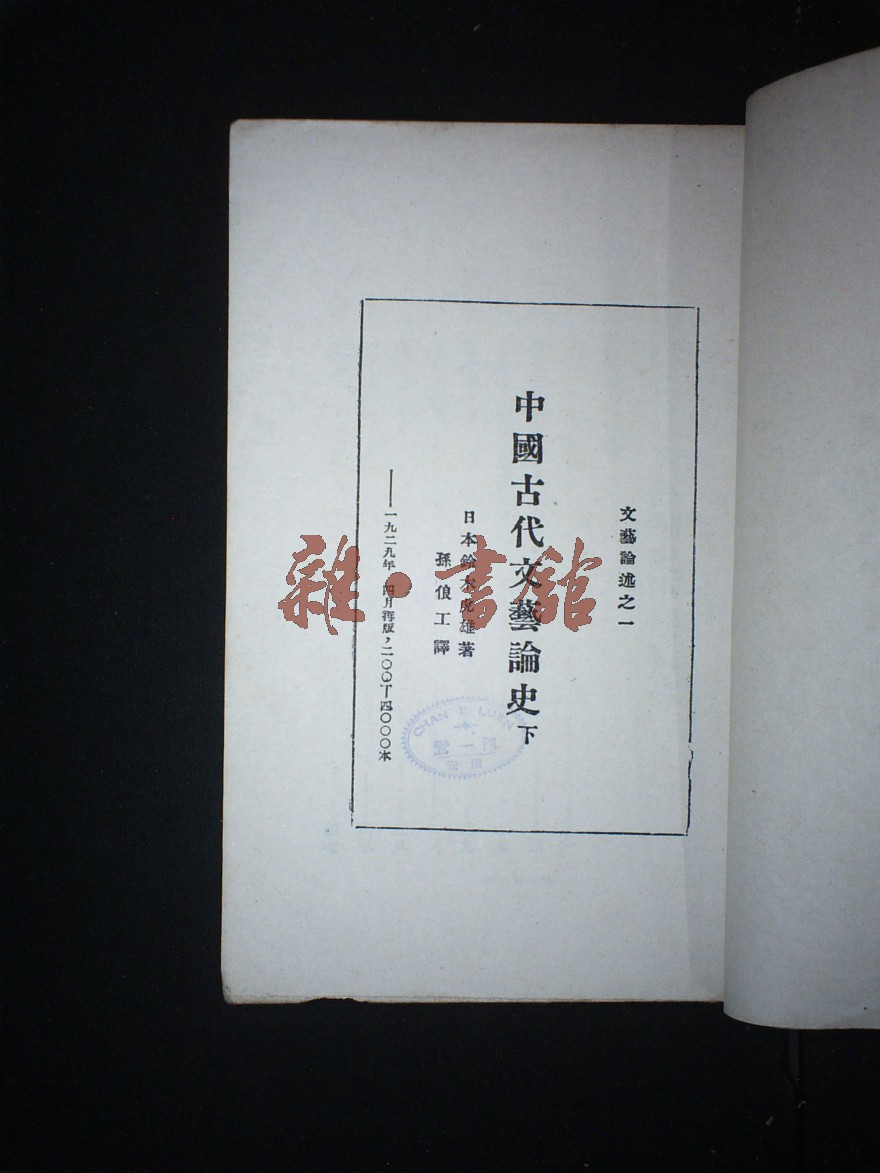 文藝論述之一
中國古代文藝論史下
日本鈴木虎雄著
孫俍工譯
——一九二九年四月再版,二〇〇一—四〇〇〇本
雜·書館
CHAN E LUEN